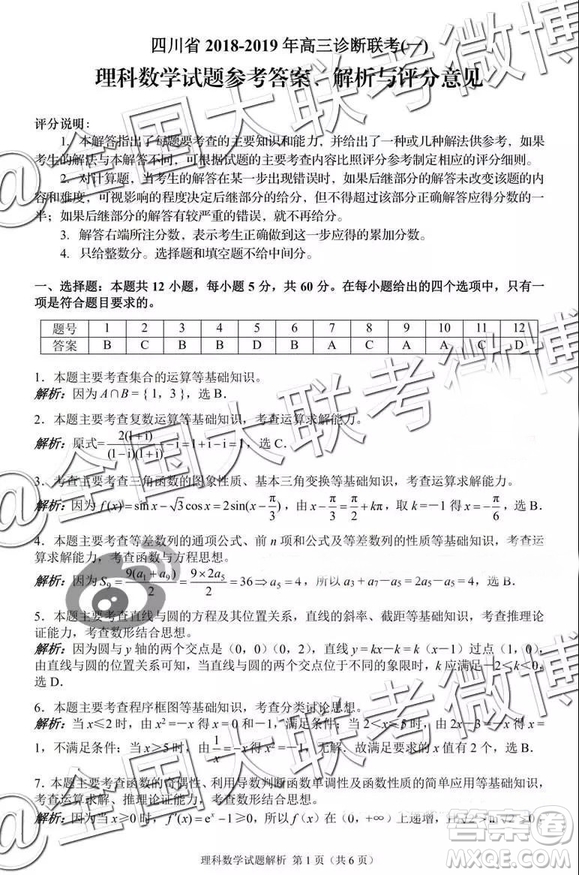 四川省 2018-2019 年高三诊断联考(一)
理科数学试题参考答案、解析与评分意见
评分说明：
1．本解答指出了每题要考查的主要知识和能力，并给出了一种或几种解法供参考，如果
考生的解法与本解答不同，可根据试题的主要考查内容比照评分参考制定相应的评分细则。
2．对计算题，当考生的解答在某一步出现错误时，如果后继部分的解答未改变该题的内
容和难度，可视影响的程度决定后继部分的给分，但不得超过该部分正确解答应得分数的一
半；如果后继部分的解答有较严重的错误，就不再给分。
3．解答右端所注分数，表示考生正确做到这一步应得的累加分数。
4．只给整数分。选择题和填空题不给中间分。
一、选择题：本题共 12 小题，每小题 5 分，共 60 分。在每小题给出的四个选项中，只有一
项是符合题目要求的。
题号 1 2 3 4 5 6 7 8 9 10 11 12
答案 B C B B D B A C D A C D
1．本题主要考查集合的运算等基础知识。
解析：因为 A∩B={1，3}，选 B．
2．本题主要考查复数运算等基础知识，考查运算求解能力。
解析：原式=2(1+i)/(1-i)(1+i)-i=1+i-i=1，选 C．
3．考查主要考查三角函数的图象性质、基本三角变换等基础知识，考查运算求解能力。
解析：因为 f(x)=sin x-√3cos x=2sin(x-π/3)，由 x-π/3=π/2+kπ，取 k=-1 得 x=-π/6，选 B．
4．本题主要考查等差数列的通项公式、前 n 项和公式及等差数列的性质等基础知识，考查运
算求解能力，考查函数与方程思想。
解析：因为 S₉=9(a₁+a₉)/2=9×2a₅/2=36⇒a₅=4，所以 a₃+a₇-a₅=2a₅-a₅=4，选 B．
5．本题主要考查直线与圆的方程及其位置关系，直线的斜率、截距等基础知识，考查推理论
证能力，考查数形结合思想。
解析：因为圆与 y 轴的两个交点是（0，0）（0，2），直线 y=kx-k=k（x-1）过点（1，0），
由直线与圆的位置关系可知，当直线与圆的有交点在第一象限时，k 应满足-2<k<0，
选 D．
6．本题主要考查程序框图等基础知识，考查分类讨论思想。
解析：当 x≤2 时，由 x²=-x 得 x=0 和-1，满足条件；当 2<x≤5 时，由 2x-3=-x 得 x=
1，不满足条件；当 x>5 时，由 1/x=-x 得 x²=-1，无解，故满足要求的 x 值有 2 个，选 B．
7．本题主要考查函数的奇偶性、利用导数判断函数单调性及函数性质的简单应用等基础知识，
考查运算求解、推理论证能力，考查数形结合思想。
解析：因为当 x≥0 时，f′(x)=eˣ-1≥0，所以 f(x) 在（0，+∞）上递增，
理科数学试题解析 第 1 页（共 6 页）
@全国大联考微博
答案圈